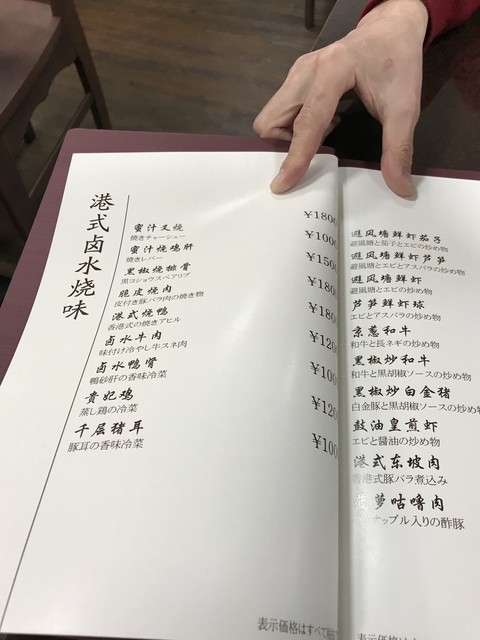 港式卤水烧味
蜜汁叉烧 ¥1800
焼きチャーシュー
蜜汁烧鸡肝 ¥1000
焼きレバー
黑椒烧排骨 ¥150
黒コショウスペアリブ
脆皮烧肉 ¥180
皮付き豚バラ肉の焼き物
港式烧鸭 ¥180
香港式の焼きアヒル
卤水牛肉 ¥120
味付け冷やし牛スネ肉
卤水鸭肾 ¥100
鴨砂肝の香味冷菜
貴妃鸡 ¥120
蒸し鶏の冷菜
千层猪耳 ¥100
豚耳の香味冷菜
表示価格はすべて
避风塘鲜虾茄子
避風塘と茄子とエビの炒め物
避风塘鲜虾芦笋
避風塘とエビとアスパラの炒め物
避风塘鲜虾
避風塘とエビの炒め物
芦笋鲜虾球
エビとアスパラの炒め物
京葱和牛
和牛と長ネギの炒め物
黑椒炒和牛
和牛と黒胡椒ソースの炒め物
黑椒炒白金猪
白金豚と黒胡椒ソースの炒め物
鼓油皇煎虾
エビと醤油の炒め物
港式东坡肉
香港式豚バラ煮込み
菠萝咕噜肉
ナップル入りの酢豚